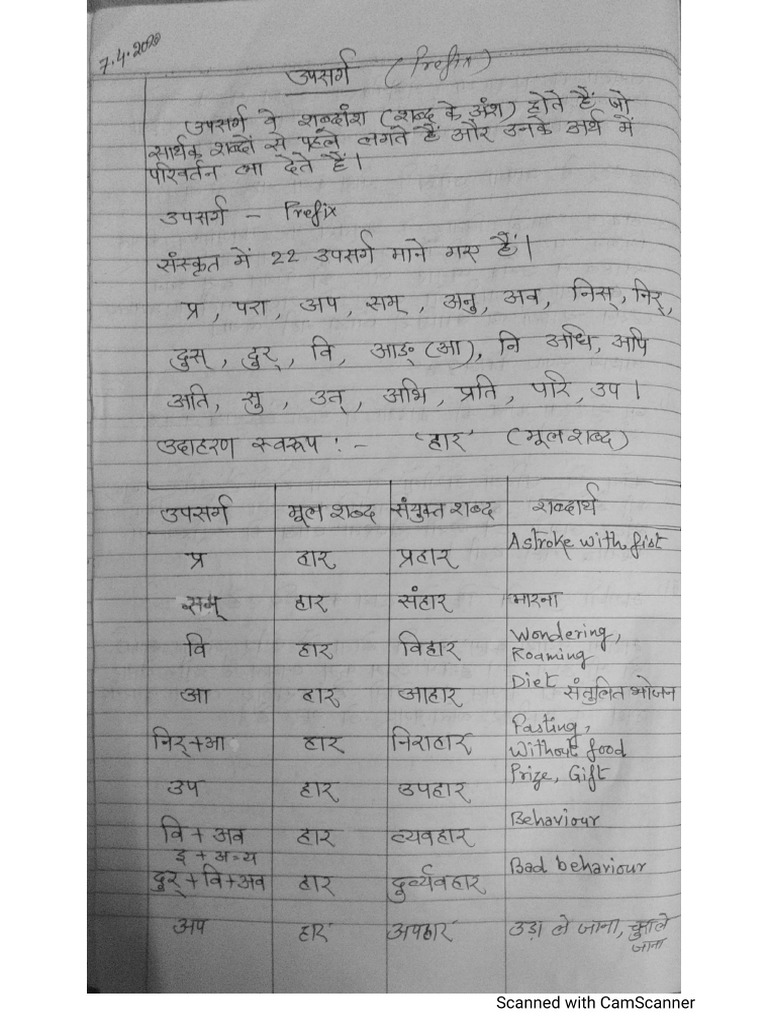 7.4.2020
उपसर्ग (Prefix)
उपसर्ग वे शब्दांश (शब्द के अंश) होते हैं जो
सार्थक शब्दों से पहले लगते हैं और उनके अर्थ में
परिवर्तन ला देते हैं।
उपसर्ग – Prefix
संस्कृत में 22 उपसर्ग माने गए हैं।
प्र, परा, अप, सम्, अनु, अव, निस्, निर्,
दुस्, दुर्, वि, आङ् (आ), नि अधि, अपि
अति, सु, उत्, अभि, प्रति, परि, उप।
उदाहरण स्वरूप :- 'हार' (मूल शब्द)
उपसर्ग मूल शब्द संयुक्त शब्द शब्दार्थ
प्र हार प्रहार A stroke with fist
सम् हार संहार मारना
वि हार विहार Wondering,
Roaming
आ हार आहार Diet संतुलित भोजन
निर्+आ हार निराहार Pasting,
Without food
उप हार उपहार Prize, Gift
वि + अव हार व्यवहार Behaviour
इ + अ = य
दुर्+वि+अव हार दुर्व्यवहार Bad behaviour
अप हार अपहार उड़ा ले जाना, चुरा ले
जाना
Scanned with CamScanner